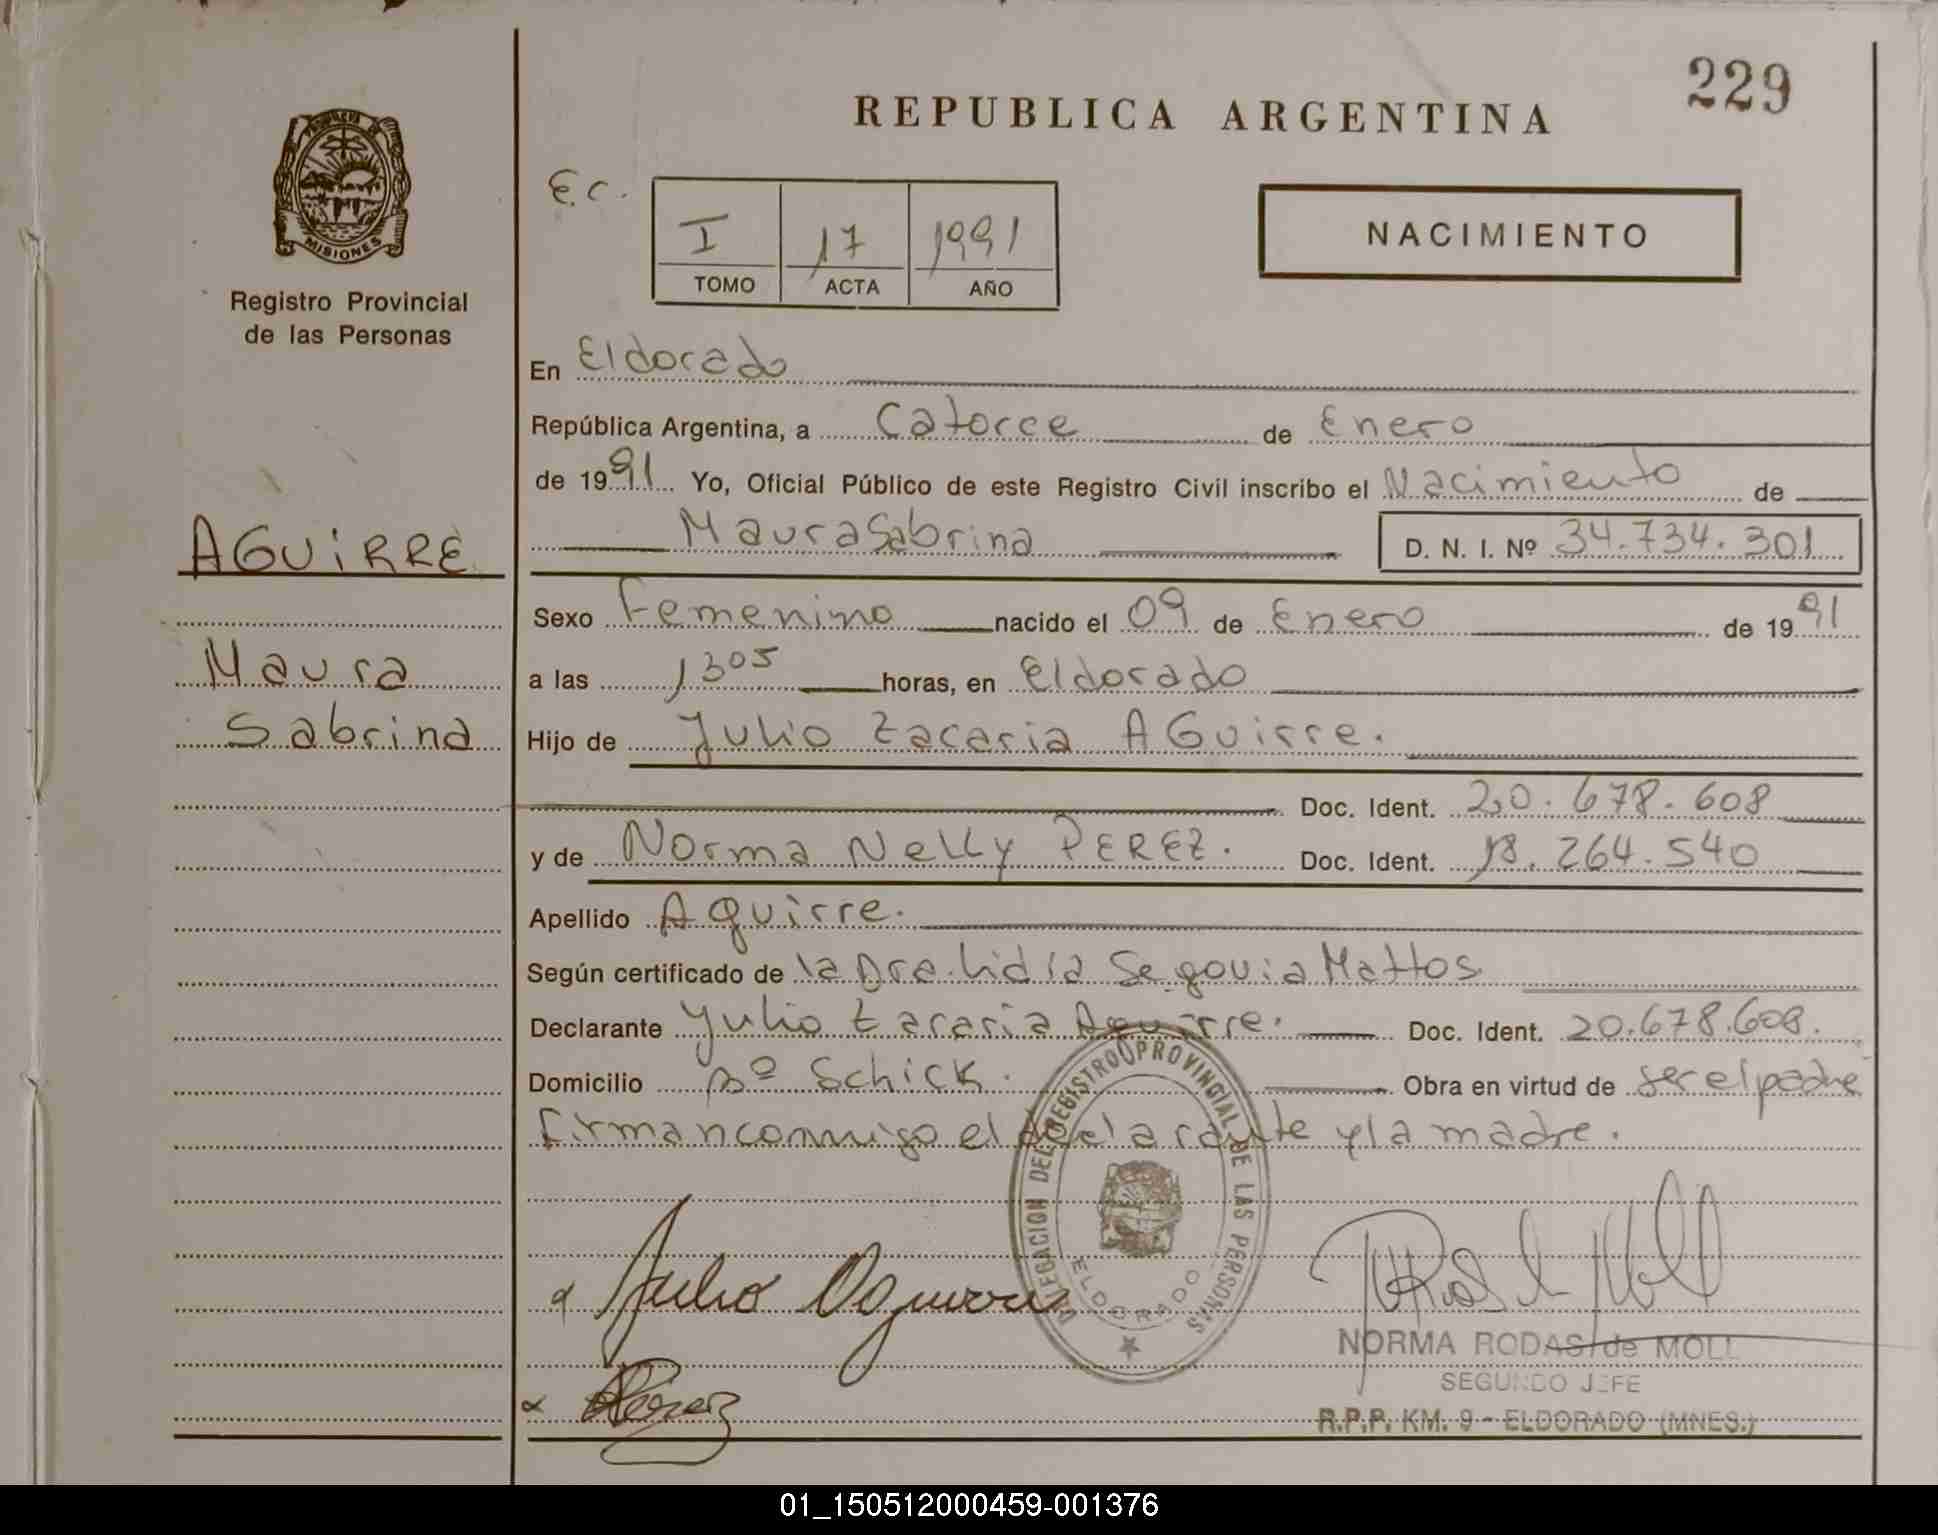 229
REPUBLICA ARGENTINA
PROVINCIA DE
MISIONES
Registro Provincial
de las Personas
E.C.
I 17 1991
TOMO ACTA AÑO
NACIMIENTO
En Eldorado
República Argentina, a Catorce de Enero
de 1991 Yo, Oficial Público de este Registro Civil inscribo el Nacimiento de
Maura Sabrina D. N. I. Nº 34.734.301
AGUiRRE
Maura
Sabrina
Sexo Femenino nacido el 09 de Enero de 1991
a las 1305 horas, en Eldorado
Hijo de Julio Zacaria AGuirre.
Doc. Ident. 20.678.608
y de Norma Nelly PEREZ. Doc. Ident. 18.264.540
Apellido Aguirre.
Según certificado de la Dra. Lidia Segovia Mattos
Declarante Julio Zacaria Aguirre. Doc. Ident. 20.678.608.
Domicilio Bº Schick. Obra en virtud de ser el padre
firman conmigo el declarante y la madre.
DELEGACION DEL REGISTRO PROVINCIAL DE LAS PERSONAS
ELDORADO
Julio Aguirre
Perez
NORMA RODAS de MOLL
SEGUNDO JEFE
R.P.P. KM. 9 - ELDORADO (MNES.)
01_150512000459-001376